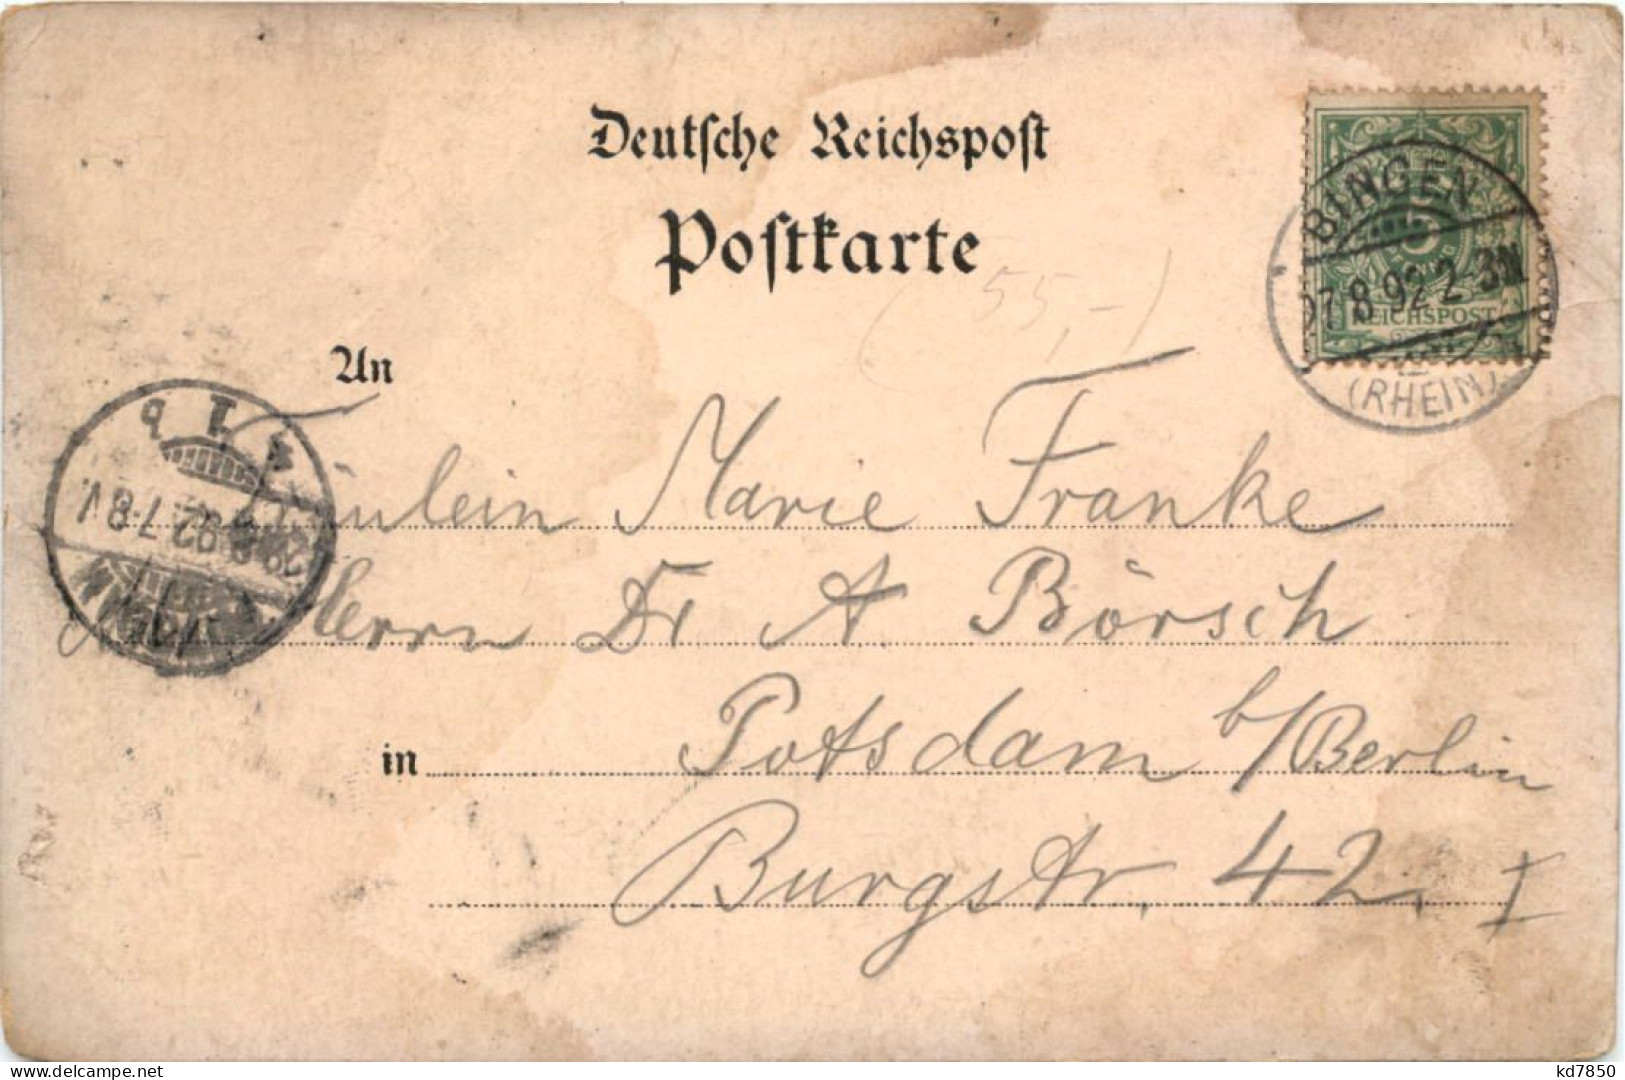 Deutsche Reichspost
Postkarte
(55,-)
BINGEN
27.8.92 2-3N
REICHSPOST
(RHEIN)
An
Fräulein Marie Franke
28.8.92 7-8V.
Herrn Dr A Börsch
in Potsdam b/Berlin
Burgstr. 42, I
kd7850